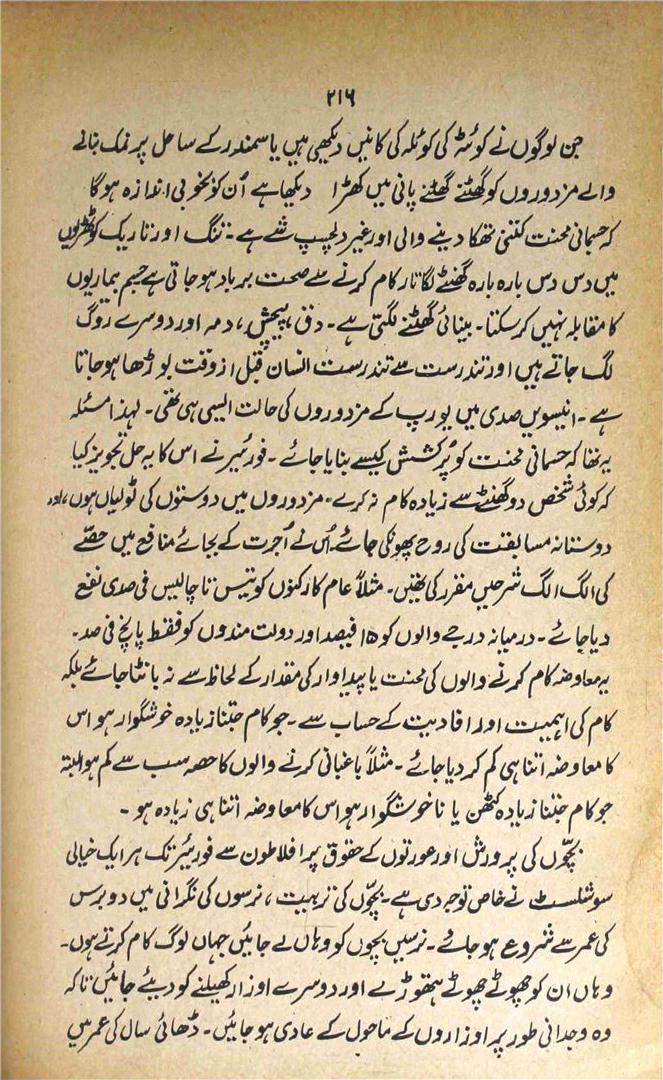 ۲۱۶
جن لوگوں نے کوئٹہ کی کوئلہ کی کانیں دیکھی ہیں یا سمندر کے ساحل پر نمک بنانے
والے مزدوروں کو گھٹنے گھٹنے پانی میں کھڑا دیکھا ہے اُن کو بخوبی اندازہ ہوگا
کہ جسمانی محنت کتنی تھکا دینے والی اور غیر دلچسپ شے ہے۔ تنگ اور تاریک کوٹھڑیوں
میں دس دس بارہ بارہ گھنٹے لگاتار کام کرنے سے صحت برباد ہو جاتی ہے جسم بیماریوں
کا مقابلہ نہیں کر سکتا۔ بینائی گھٹنے لگتی ہے۔ دق، پیچش، دمہ اور دوسرے روگ
لگ جاتے ہیں اور تندرست سے تندرست انسان قبل از وقت بوڑھا ہو جاتا
ہے۔ انیسویں صدی میں یورپ کے مزدوروں کی حالت ایسی ہی تھی۔ لہذا مسئلہ
یہ تھا کہ جسمانی محنت کو پُرکشش کیسے بنایا جائے۔ فورئیر نے اس کا یہ حل تجویز کیا
کہ کوئی شخص دو گھنٹے سے زیادہ کام نہ کرے۔ مزدوروں میں دوستوں کی ٹولیاں ہوں، اور
دوستانہ مسابقت کی روح پھونکی جائے۔ اُس نے اُجرت کے بجائے منافع میں حصّے
کی الگ الگ شرحیں مقرر کی تھیں۔ مثلاً عام کارکنوں کو تیس تا چالیس فی صدی نفع
دیا جائے۔ درمیانہ درجے والوں کو ۱۵ فیصد اور دولت مندوں کو فقط پانچ فی صد۔
یہ معاوضہ کام کرنے والوں کی محنت یا پیداوار کی مقدار کے لحاظ سے نہ بانٹا جائے بلکہ
کام کی اہمیت اور افادیت کے حساب سے۔ جو کام جتنا زیادہ خوشگوار ہو اس
کا معاوضہ اتنا ہی کم کر دیا جائے۔ مثلاً باغبانی کرنے والوں کا حصہ سب سے کم ہو البتہ
جو کام جتنا زیادہ کٹھن یا ناخوشگوار ہو اس کا معاوضہ اتنا ہی زیادہ ہو۔
بچّوں کی پرورش اور عورتوں کے حقوق پر افلاطون سے فورئیر تک ہر ایک خیالی
سوشلسٹ نے خاص توجہ دی ہے۔ بچّوں کی تربیت، نرسوں کی نگرانی میں دو برس
کی عمر سے شروع ہو جائے۔ نرسیں بچوں کو وہاں لے جائیں جہاں لوگ کام کرتے ہوں۔
وہاں ان کو چھوٹے چھوٹے ہتھوڑے اور دوسرے اوزار کھیلنے کو دیئے جائیں تاکہ
وہ وجدانی طور پر اوزاروں کے ماحول کے عادی ہو جائیں۔ ڈھائی سال کی عمر میں